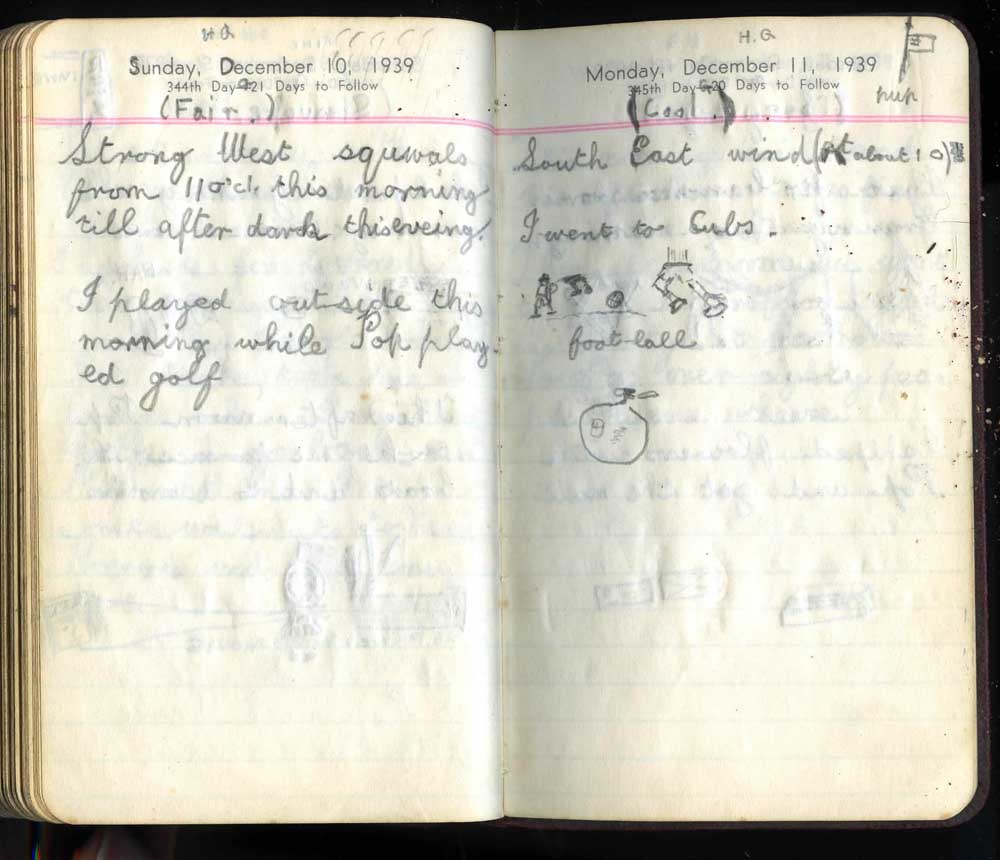 H.G
Sunday, December 10, 1939
344th Day 21 Days to Follow
(Fair.)
Strong West squwals
from 11 o'cl. this morning
till after darck this eveing.
I played out-side this
morning while Pop play-
ed golf
H.G
Monday, December 11, 1939
345th Day 20 Days to Follow
(Cool.)
South East wind (at about 10)
I went to Cubs.
foot-ball